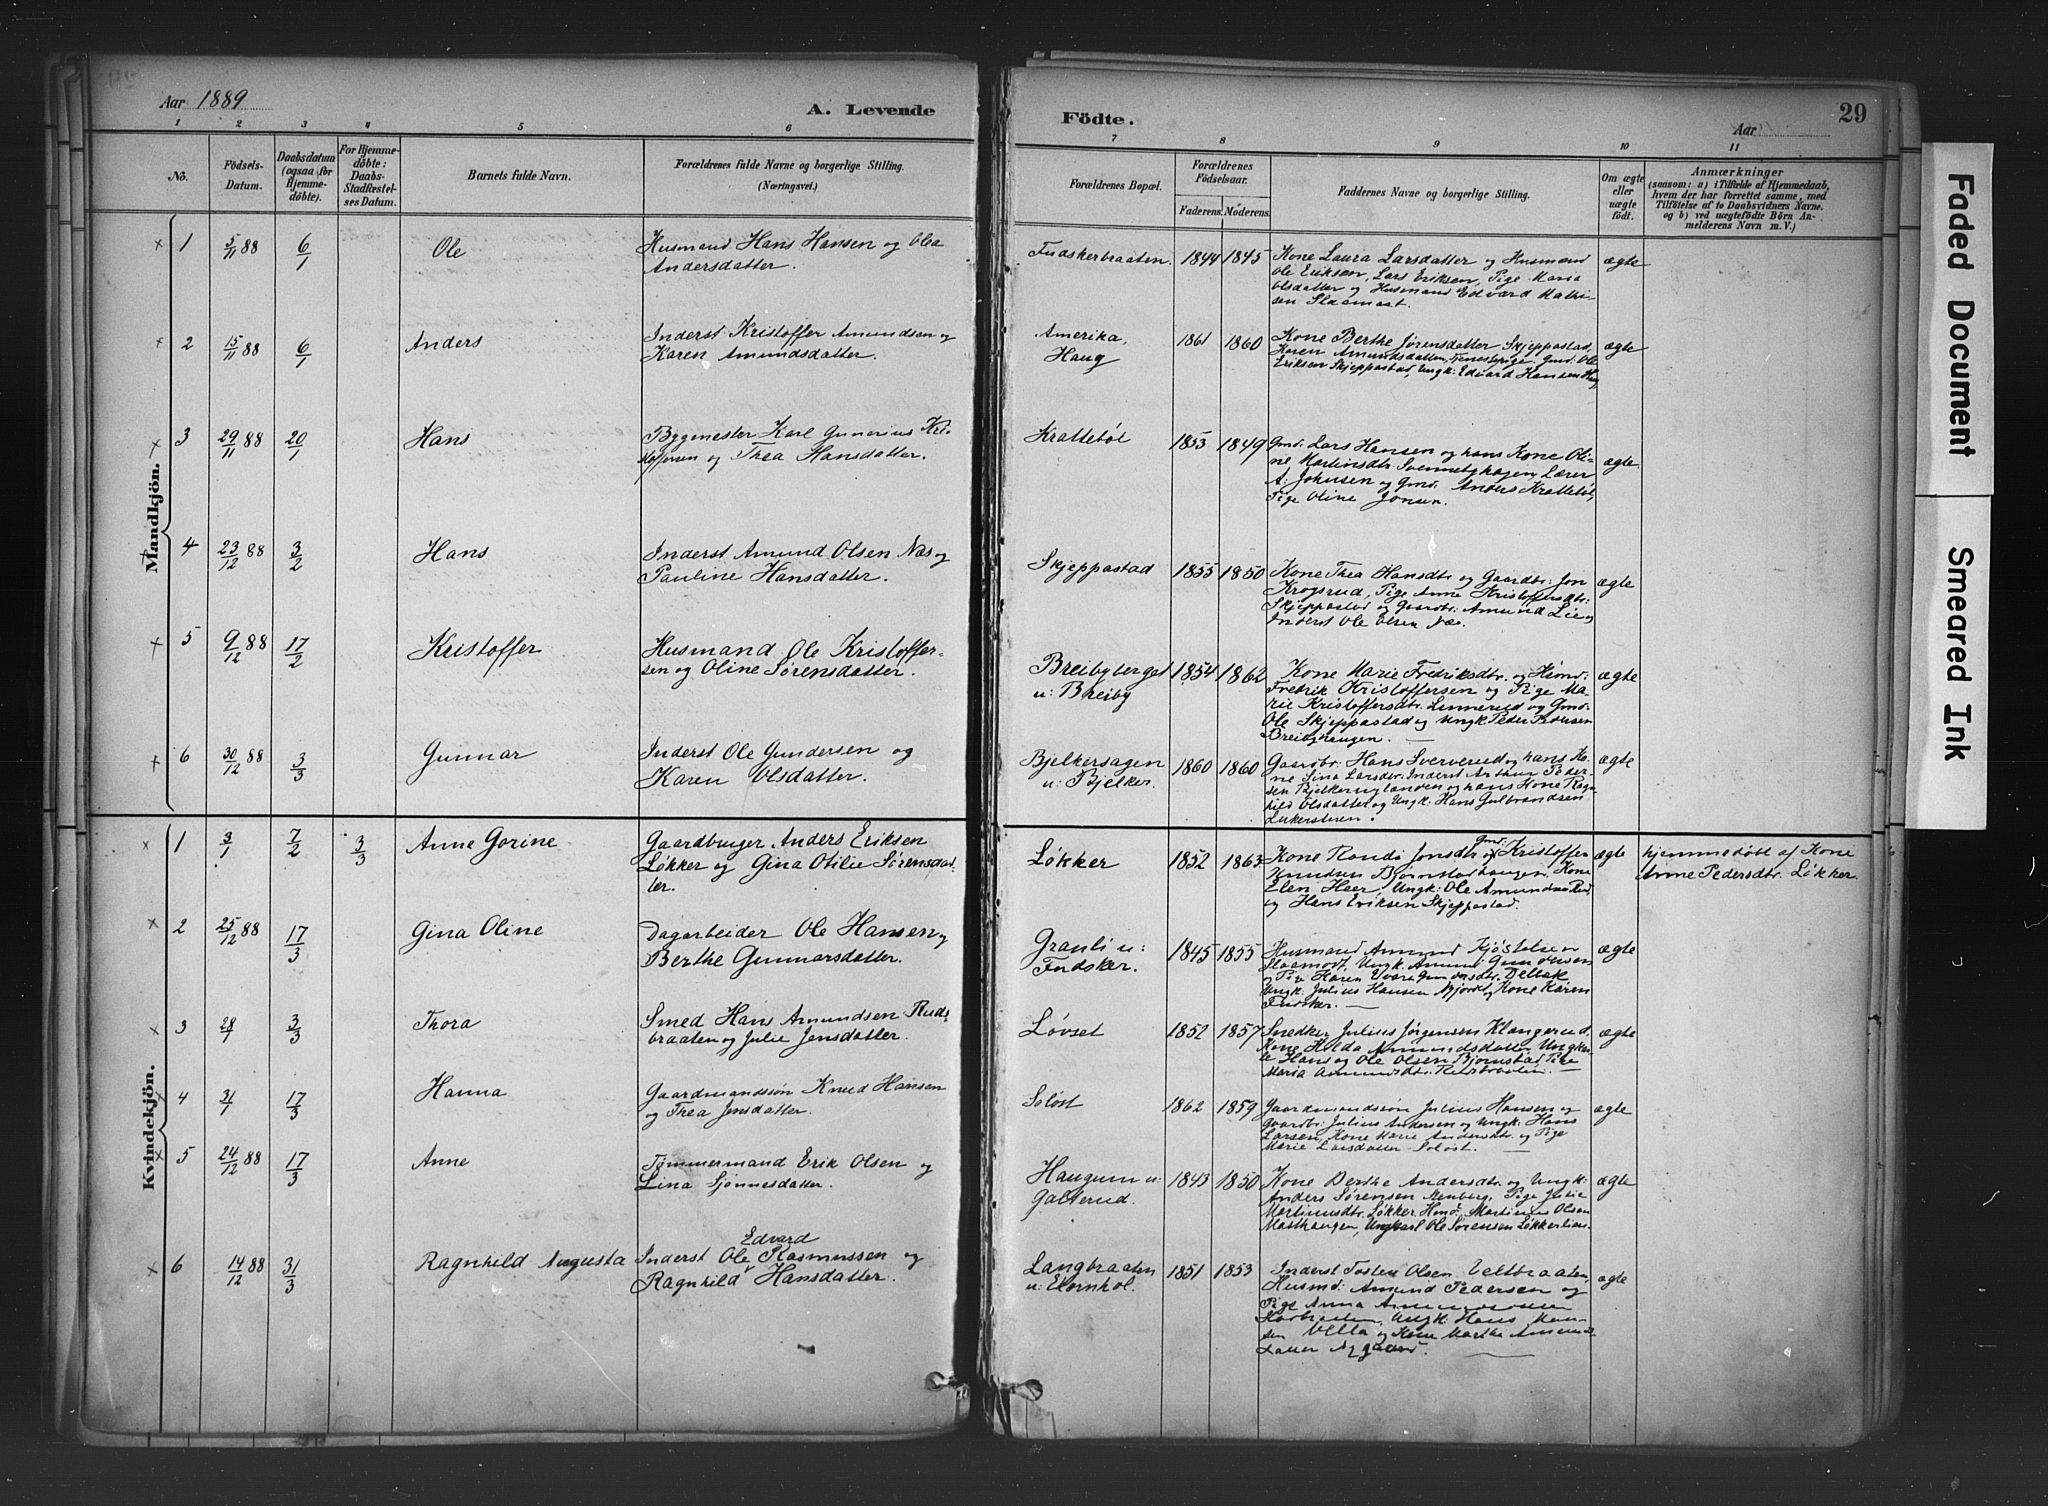 Aar 1889
A. Levende
Födte.
Aar
29
1 2 3 4 5 6 7 8 9 10 11
No.
Födsels-
Datum.
Daabsdatum
(ogsaa for
Hjemme-
döbte).
For Hjemme-
döbte:
Daabs-
Stadfæstel-
ses Datum.
Barnets fulde Navn.
Forældrenes fulde Navne og borgerlige Stilling.
(Næringsvei.)
Forældrenes Bopæl.
Forældrenes
Födselsaar.
Faderens. Moderens.
Faddernes Navne og borgerlige Stilling.
Om ægte
eller
uægte
födt.
Anmærkninger
(saasom: a) i Tilfælde af Hjemmedaab,
hvem der har forrettet samme, med
Tilföielse af to Daabsvidners Navne.
og b) ved uægtefödte Börn An-
melderens Navn m. V.)
Mandkjön.
1 5/11 88 6/1 Ole
Husmand Hans Hansen og Olea
Andersdatter.
Fudskerbraaten. 1844 1845
Kone Laura Larsdatter og Husmand
Ole Eriksen, Lars Eriksen, Pige Maria
Olsdatter og Husmand Edvard Mathi-
sen Slaamoet.
ægte
2 15/11 88 6/1 Anders
Inderst Kristoffer Amundsen og
Karen Amundsdatter.
Amerika,
Haug
1861 1860
Kone Berthe Sørensdatter Skjeppastad,
Karen Amundsdatter, Tjenestepige, Gmd: Ole
Eriksen Skjeppastad, Ungk: Edvard Hansen Haug
ægte
3 29/11 88 20/1 Hans
Bygmester Karl Gunerius Kri-
stoffersen og Thea Hansdatter.
Kratteböl 1853 1849
Gmd: Lars Hansen og hans Kone Oli-
ne Martinsdtr. Svennetzhagen, Lærer
A: Johnsen og Gmd. Anders Kratteböl,
Pige Oline Jonsen.
ægte
4 23/12 88 3/2 Hans
Inderst Amund Olsen Næs og
Pauline Hansdatter.
Skjeppastad 1855 1850
Kone Thea Hansdtr og Gaardbr: Jon
Krogsrud, Pige Anne Kristoffersdtr:
Skjeppastad og Gaardbr: Amund Lie og
Inderst Ole Olsen Næs.
ægte
5 9/12 88 17/2 Kristoffer
Husmand Ole Kristoffer-
sen og Oline Sørensdatter.
Breibyberget
u: Breiby
1854 1862
Kone Marie Fredriksdtr. og Hsmd:
Fredrik Kristoffersen og Pige Ma-
rie Kristoffersdtr. Linnerud og Gmd:
Ole Skjeppastad og Ungk Peder
Breibyhaugen.
ægte
6 30/12 88 3/3 Gunnar
Inderst Ole Gundersen og
Karen Olsdatter.
Bjelkersagen
u: Bjelker.
1860 1860
Gaardbr: Hans Sververud og hans Ko-
ne Sina Larsdtr: Inderst Arthur Peder-
sen Bjelkernylanden og hans Kone Ragn-
hild Olsdatter og Ungk: Hans Gulbrandsen
ægte
Kvindekjön.
1 3/1 7/2 3/3 Anne Gorine
Gaardbruger Anders Eriksen
Løkker og Gina Otilie Sørensdat-
ter.
Løkker 1852 1863
Kone Randi Jonsdtr og Gmd: Kristoffer
Knudsen Bjørnstadhaugen. Kone
Elen Heer, Ungk: Ole Amundsen Rud
og Hans Eriksen Skjeppastad.
ægte
hjemmedøbt af Kone
Anne Pedersdtr. Løkker.
2 25/12 88 17/3 Gina Oline
Dagarbeider Ole Hansen og
Berthe Gunnarsdatter.
Granli u:
Fudsker.
1845 1855
Husmand Amund Kjøstelsen
Slaamoet, Ungk. Amund Gundersen
og Pige Karen Gundersdtr. Delbak
Ungk: Julius Hansen og Kone Karen
Fudsker.
ægte
3 28/1 3/3 Thora
Smed Hans Amundsen Ruds-
braaten og Julie Jensdatter.
Løvset 1852 1857
Snedker Julius Jørgensen Klangerud,
Kone Hilda Amundsdatter Ungkar-
le Hans og Ole Olsen Bjørnstad Pige
Maria Amundsdtr. Rudsbraaten.
ægte
4 31/1 17/3 Hanna
Gaardmandssøn Knud Hansen
og Thea Jensdatter.
Soløst 1862 1859
Gaardmandssøn Julius Hansen og
Gaardbr: Julius Andersen og Ungk: Hans
Larsen, Kone Marie Andersdtr. og Pige
Marie Larsdatter Soløst.
ægte
5 24/12 88 17/3 Anne
Tømmermand Erik Olsen og
Lina Sjønnesdatter.
Haugum u:
Galterud.
1843 1850
Kone Berthe Andersdtr og Ungk:
Anders Sørensen Stenberg, Pige Julie
Martinusdtr. Løkker Hsmd: Martinus Olsen
Masthaugen, Ungkarl Ole Sørensen Løkkerlien.
ægte
6 14/12 88 31/3 Ragnhild Augusta
Edvard
Inderst Ole Rasmussen og
Ragnhild Hansdatter.
Langbraaten
u: Elornhol.
1851 1853
Inderst Tosten Olsen Veltbraaten,
Husmd: Amund Pedersen og
Pige Anna
Ungk Hans
Vella og Kone Marthe Amunds-
datter Nygaard.
ægte
Faded Document
Smeared Ink